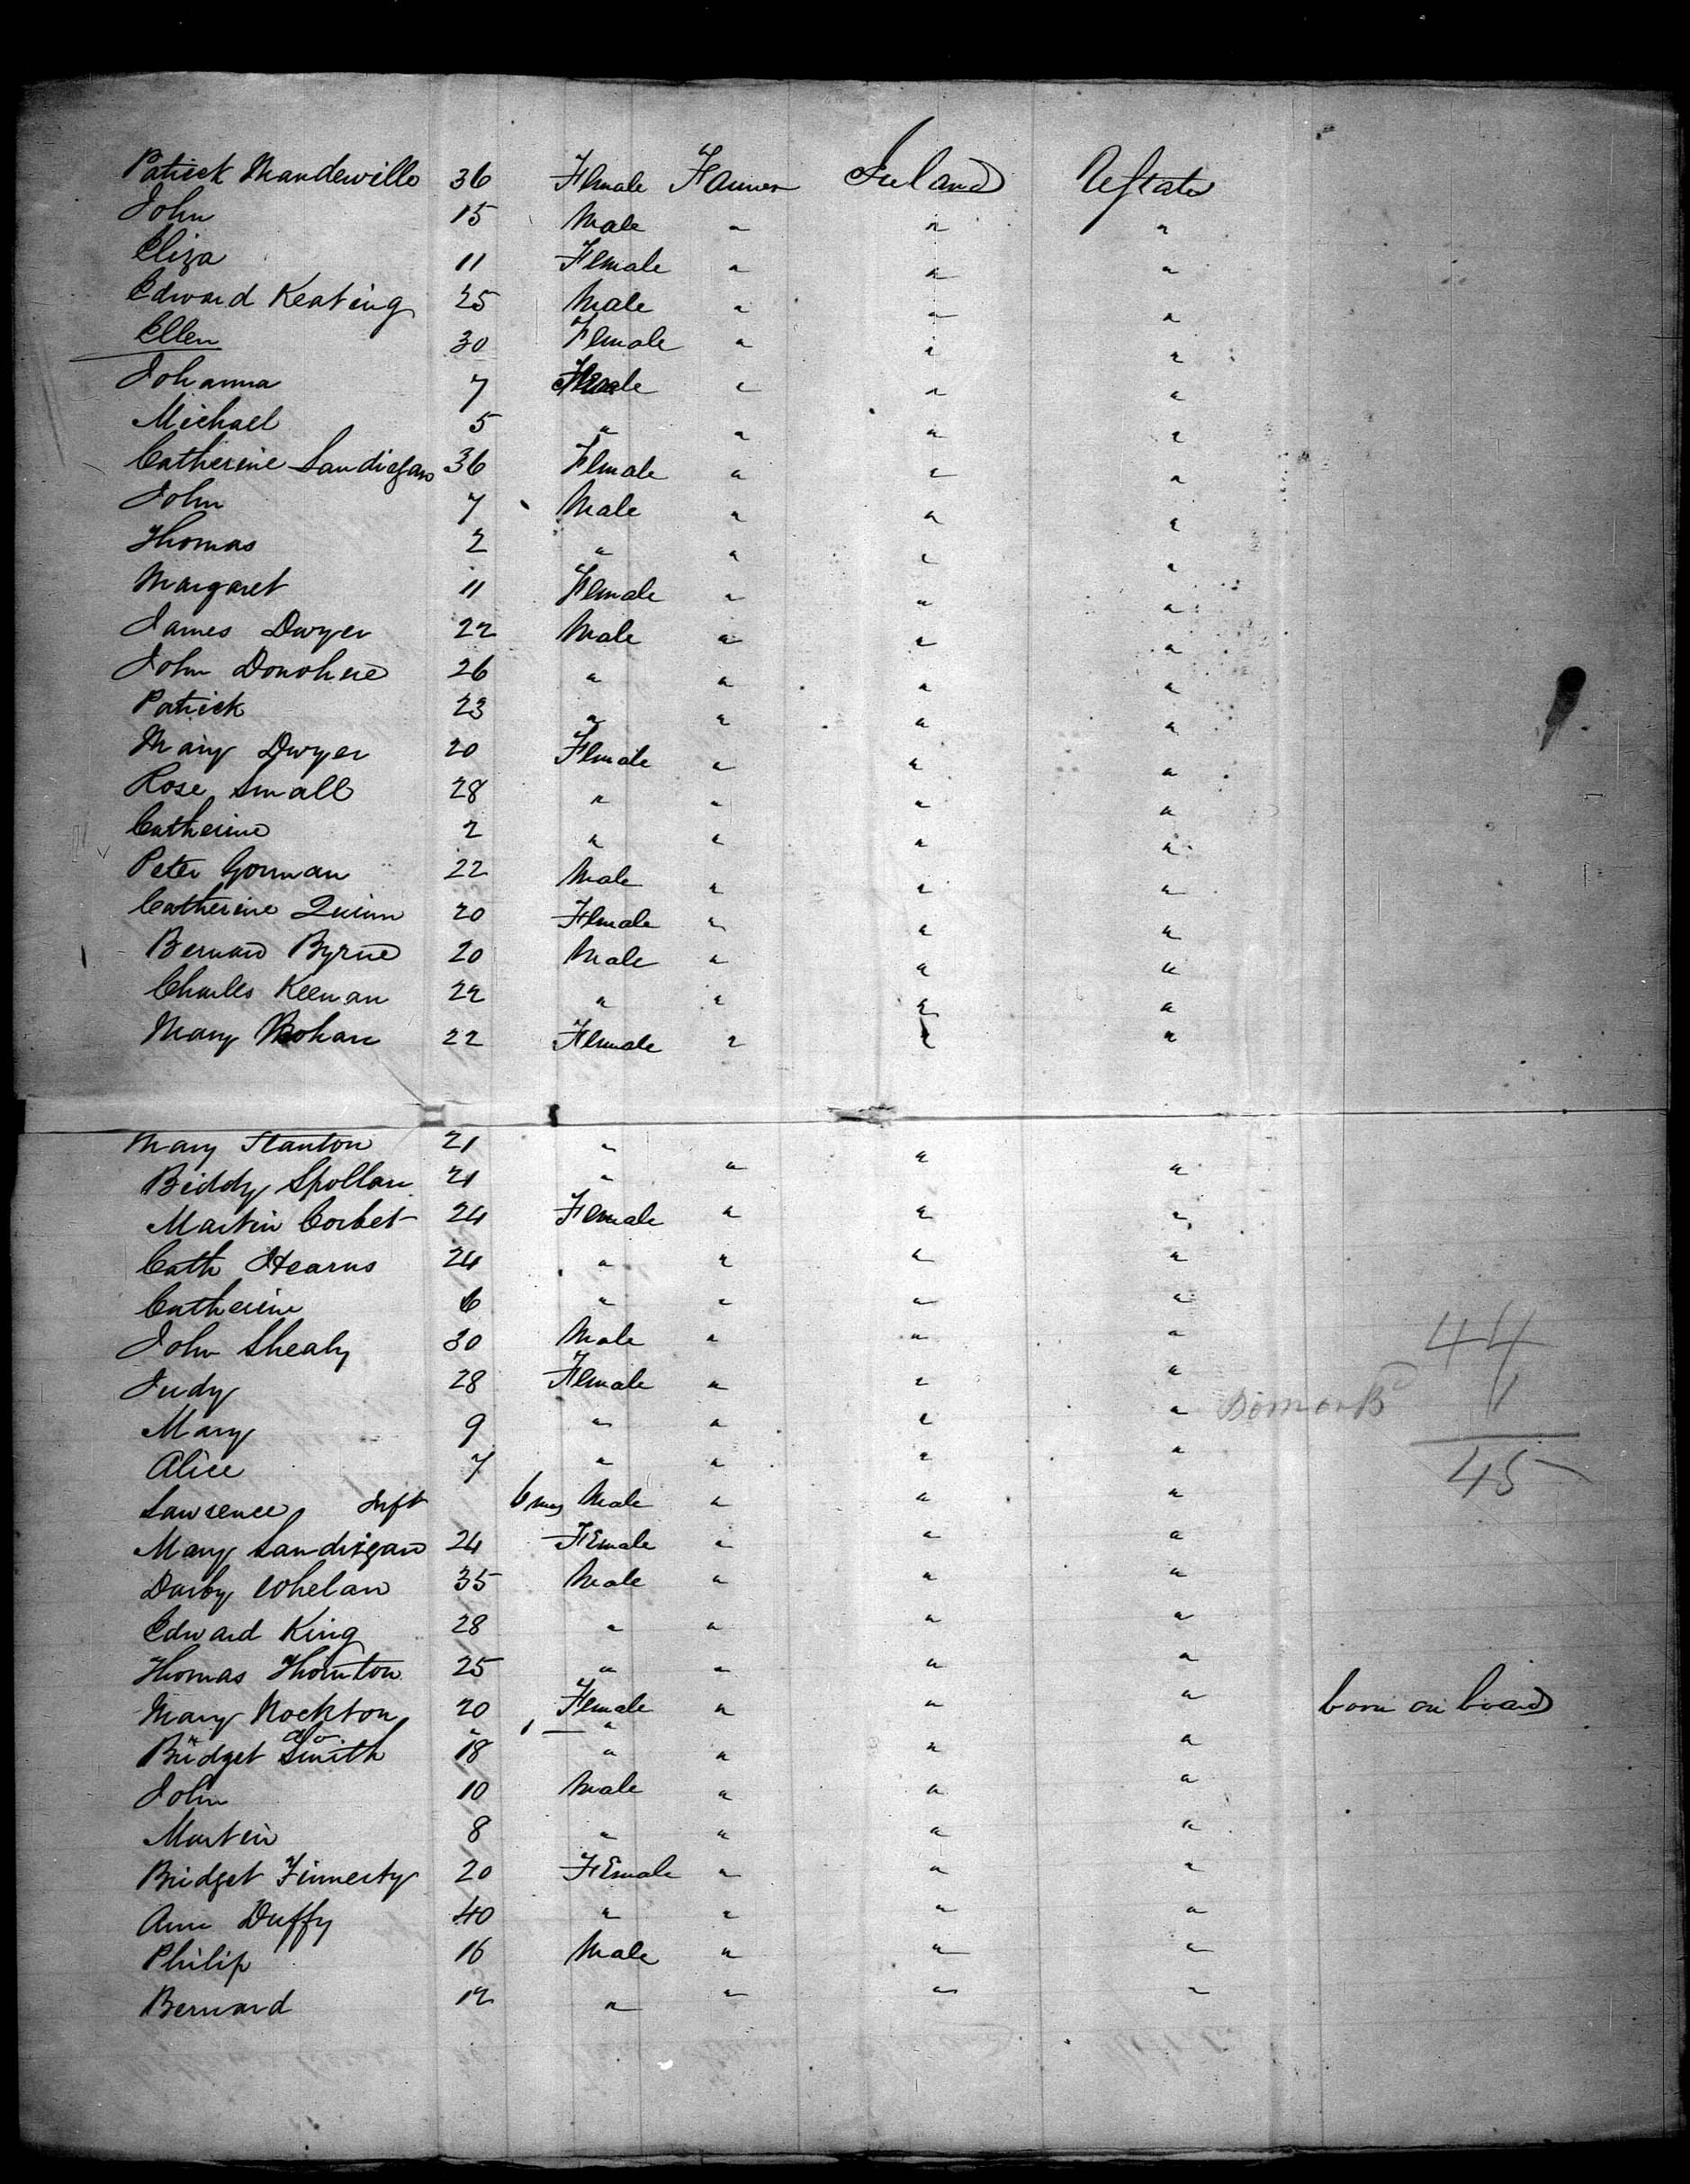 Patrick Mandeville 36 Female Farmer Ireland UStates
John 15 Male " " "
Eliza 11 Female " " "
Edward Keating 25 Male " " "
Ellen 30 Female " " "
Johanna 7 " " "
Michael 5 " " " "
Catherine Landigan 36 Female " " "
John 7 Male " " "
Thomas 2 " " " "
Margaret 11 Female " " "
James Dwyer 22 Male " " "
John Donohue 26 " " " "
Patrick 23 " " " "
Mary Dwyer 20 Female " " "
Rose Small 28 " " " "
Catherine 2 " " " "
Peter Gorman 22 Male " " "
Catherine Quinn 20 Female " " "
Bernard Byrne 20 Male " " "
Charles Keenan 22 " " " "
Mary Bohan 22 Female " " "
Mary Stanton 21 " " " "
Biddy Spollan 21 "
Martin Corbet 24 Female " " "
Cath Hearns 24 " " " "
Catherine 6 " " " "
John Shealy 30 Male " " "
44
Judy 28 Female " " "
1
Mary 9 " " " "
Alice 7 " " " "
45
Lawrence Inft 6 mos Male " " "
Mary Landigan 24 Female " " "
Darby Whelan 35 Male " " "
Edward King 28 " " " "
Thomas Thornton 25 " " " "
Mary Nockton 20 Female " " " born on board
" do 1 — "
Bridget Smith 18 " " " "
John 10 Male " " "
Martin 8 " " " "
Bridget Finnerty 20 Female " " "
Ann Duffy 40 " " " "
Philip 16 Male " " "
Bernard 12 " " " "